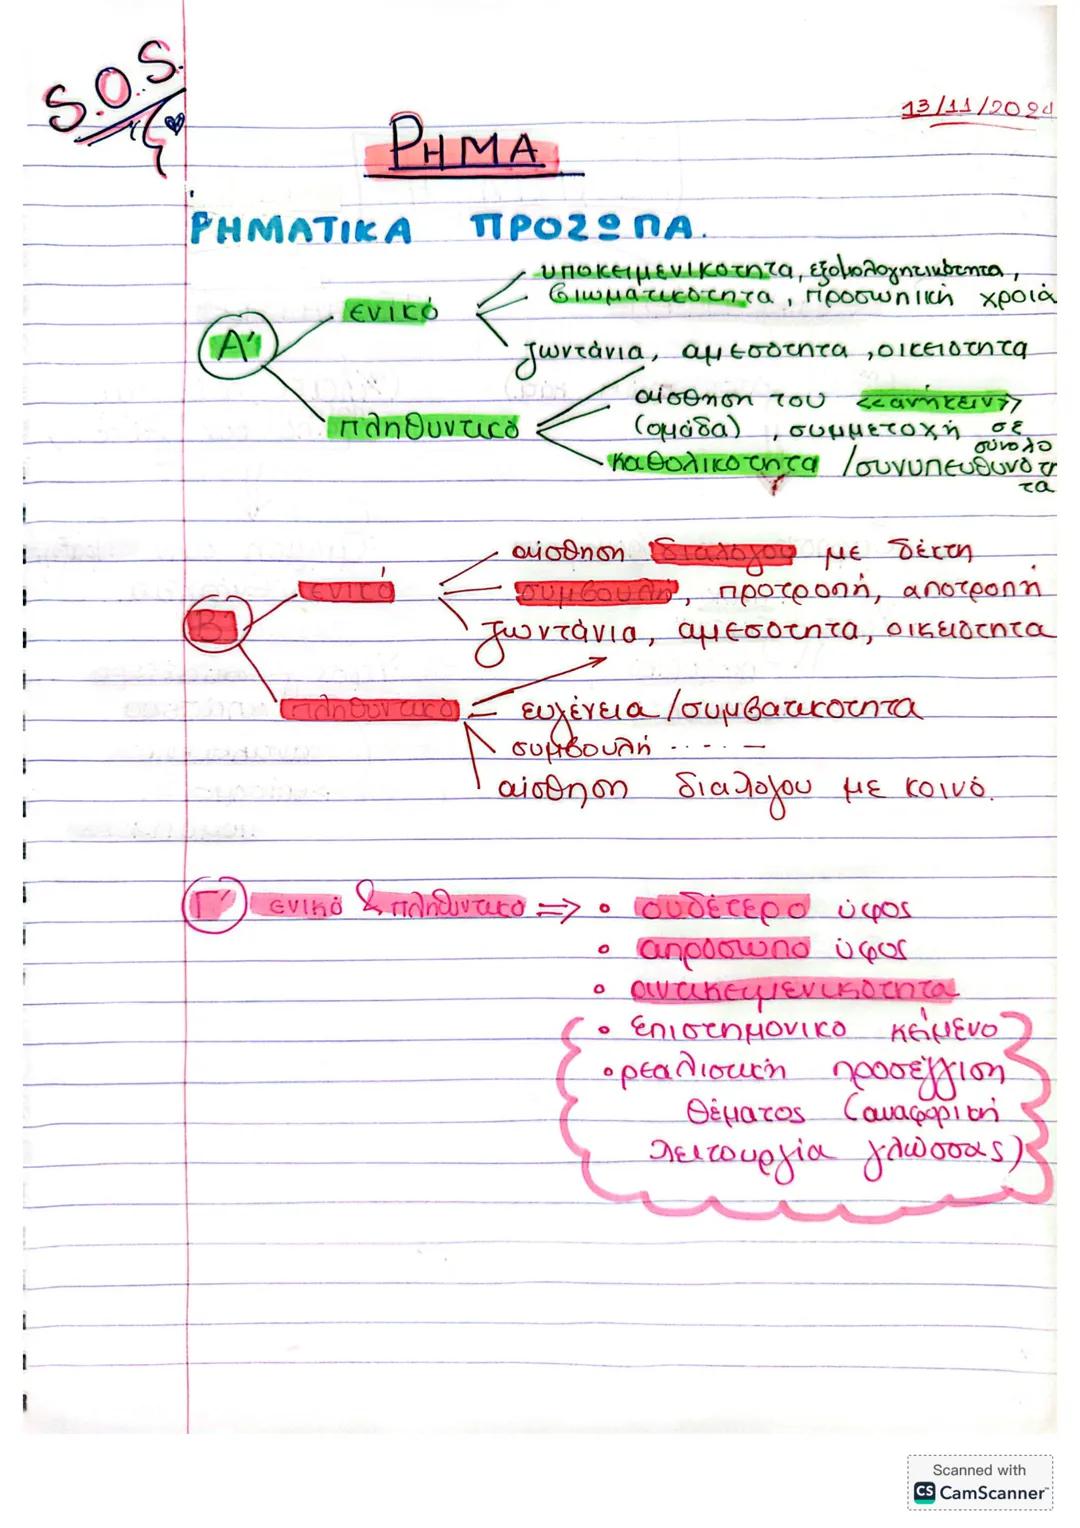 S.O.S.
13/11/2024
ΡΗΜΑ
ΡΗΜΑΤΙΚΑ ΠΡΟΣΩΠΑ.
υποκειμενικότητα, εξομολογητικότητα,
ενικό
βιωματικότητα, προσωπική χροιά
Α'
ζωντάνια, αμεσότητα, οικειότητα
αίσθηση του <<ανήκειν>>
πληθυντικό
(ομάδα), συμμετοχή σε
σύνολο
καθολικότητα /συνυπευθυνότη
τα
αίσθηση διαλόγου με δέκτη
ενικό
συμβουλή, προτροπή, αποτροπή
Β'
ζωντάνια, αμεσότητα, οικειότητα
πληθυντικό
ευγένεια/συμβατικότητα
συμβουλή ....-
αίσθηση διαλόγου με κοινό.
Γ' ενικό & πληθυντικό => • ουδέτερο ύφος
• απρόσωπο ύφος
• αντικειμενικότητα
• επιστημονικο κείμενο
• ρεαλιστική προσέγγιση
θέματος (αναφορική
λειτουργία γλώσσας)
Scanned with
CS CamScanner